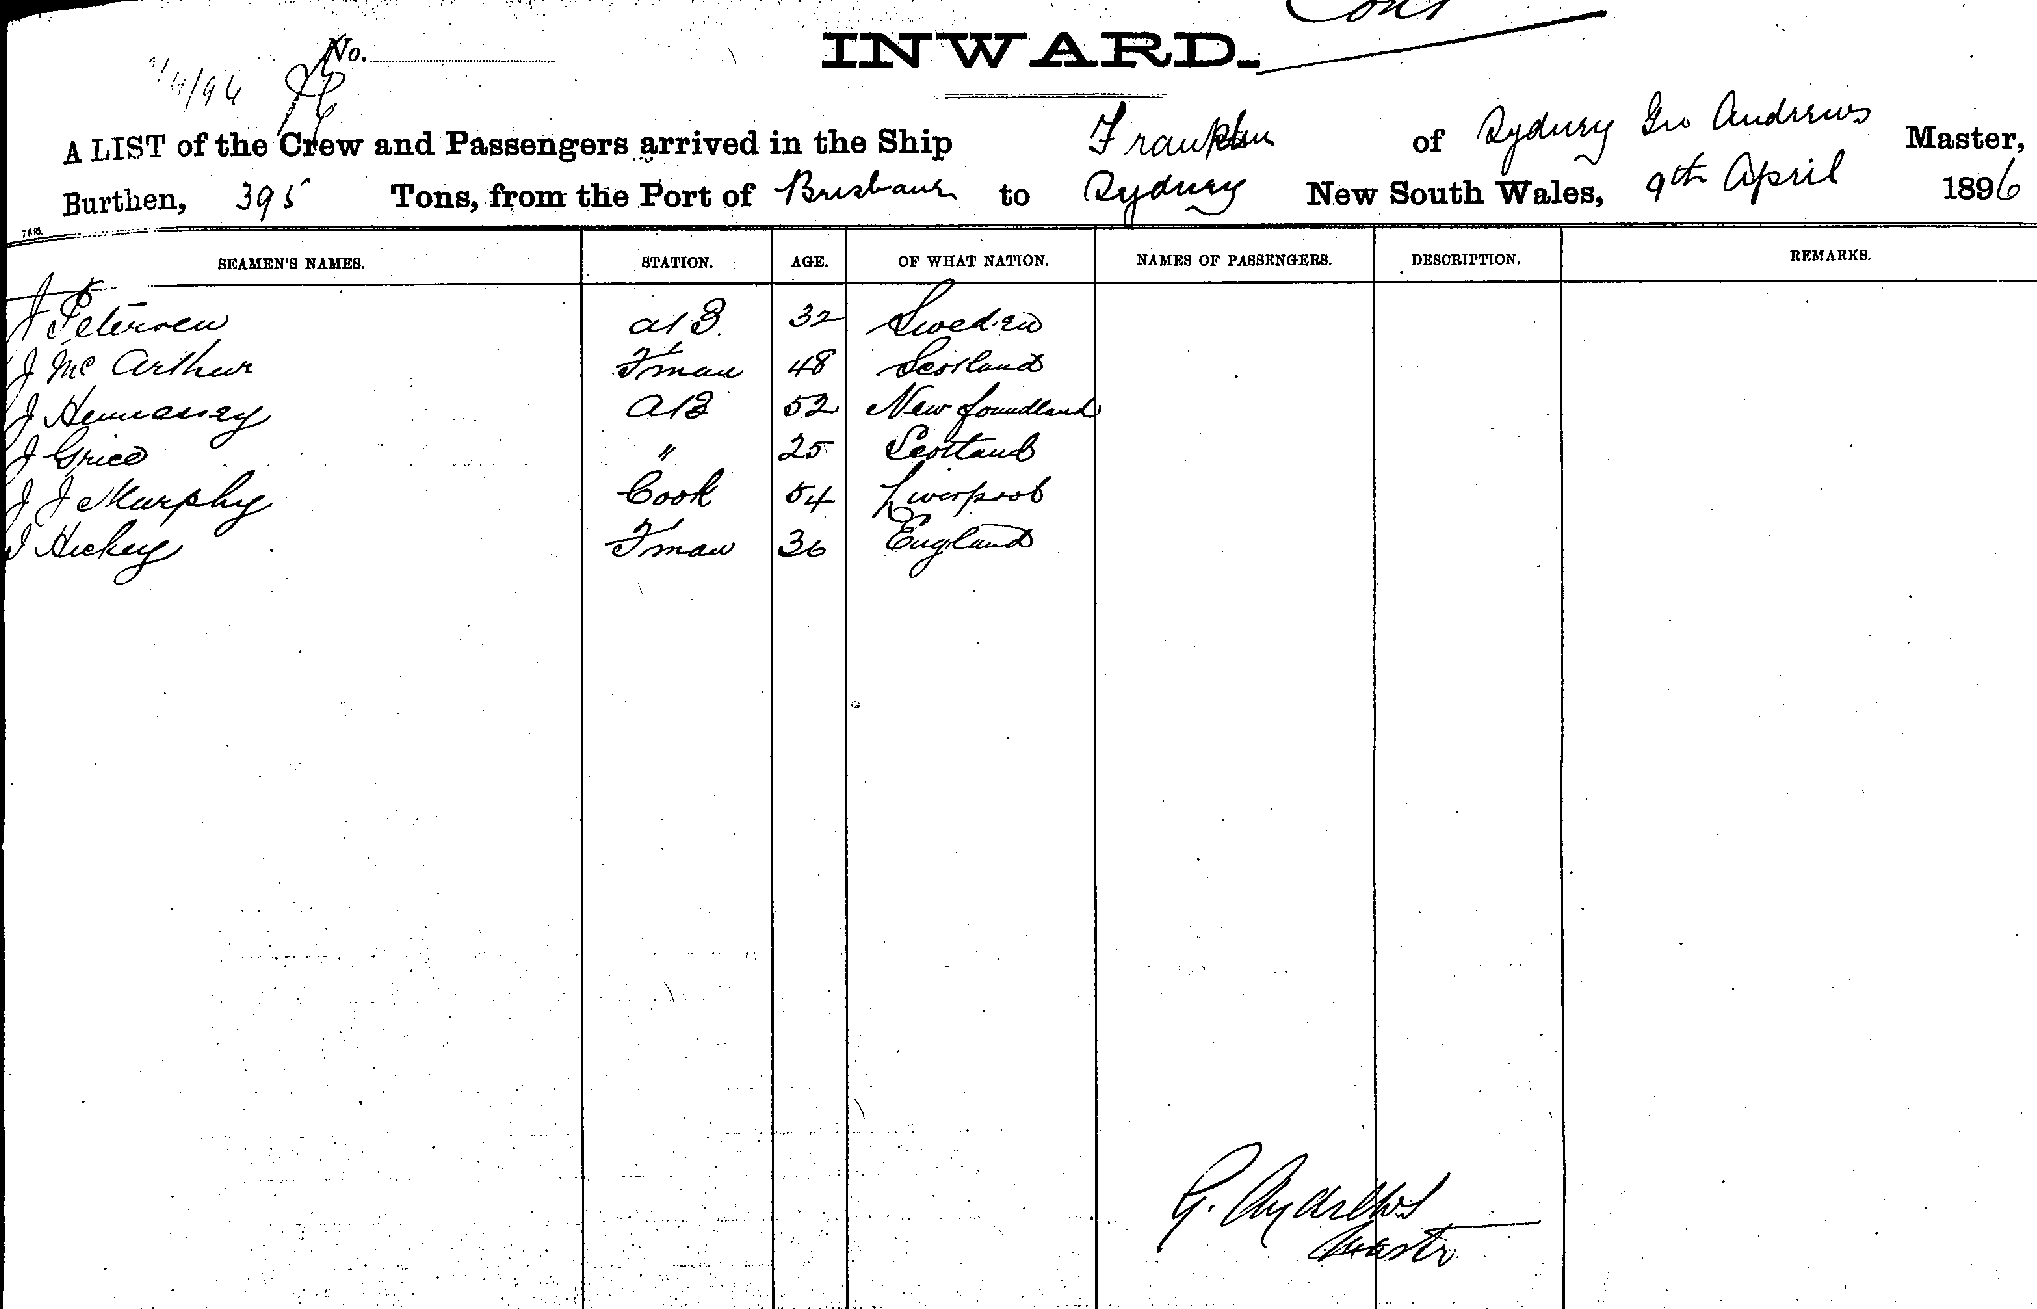 Cont
No.
INWARD.
9/4/96
A LIST of the Crew and Passengers arrived in the Ship Franklin of Sydney Geo Andrews Master,
Burthen, 395 Tons, from the Port of Brisbane to Sydney New South Wales, 9th April 1896
SEAMEN'S NAMES. STATION. AGE. OF WHAT NATION. NAMES OF PASSENGERS. DESCRIPTION. REMARKS.
Petersen AB 32 Sweden
J McArthur Fman 48 Scotland
J Hennessey AB 52 Newfoundland
J Grice " 25 Scotland
J J Murphy Cook 54 Liverpool
J Hickey Fman 36 England
G. Andrews
Master